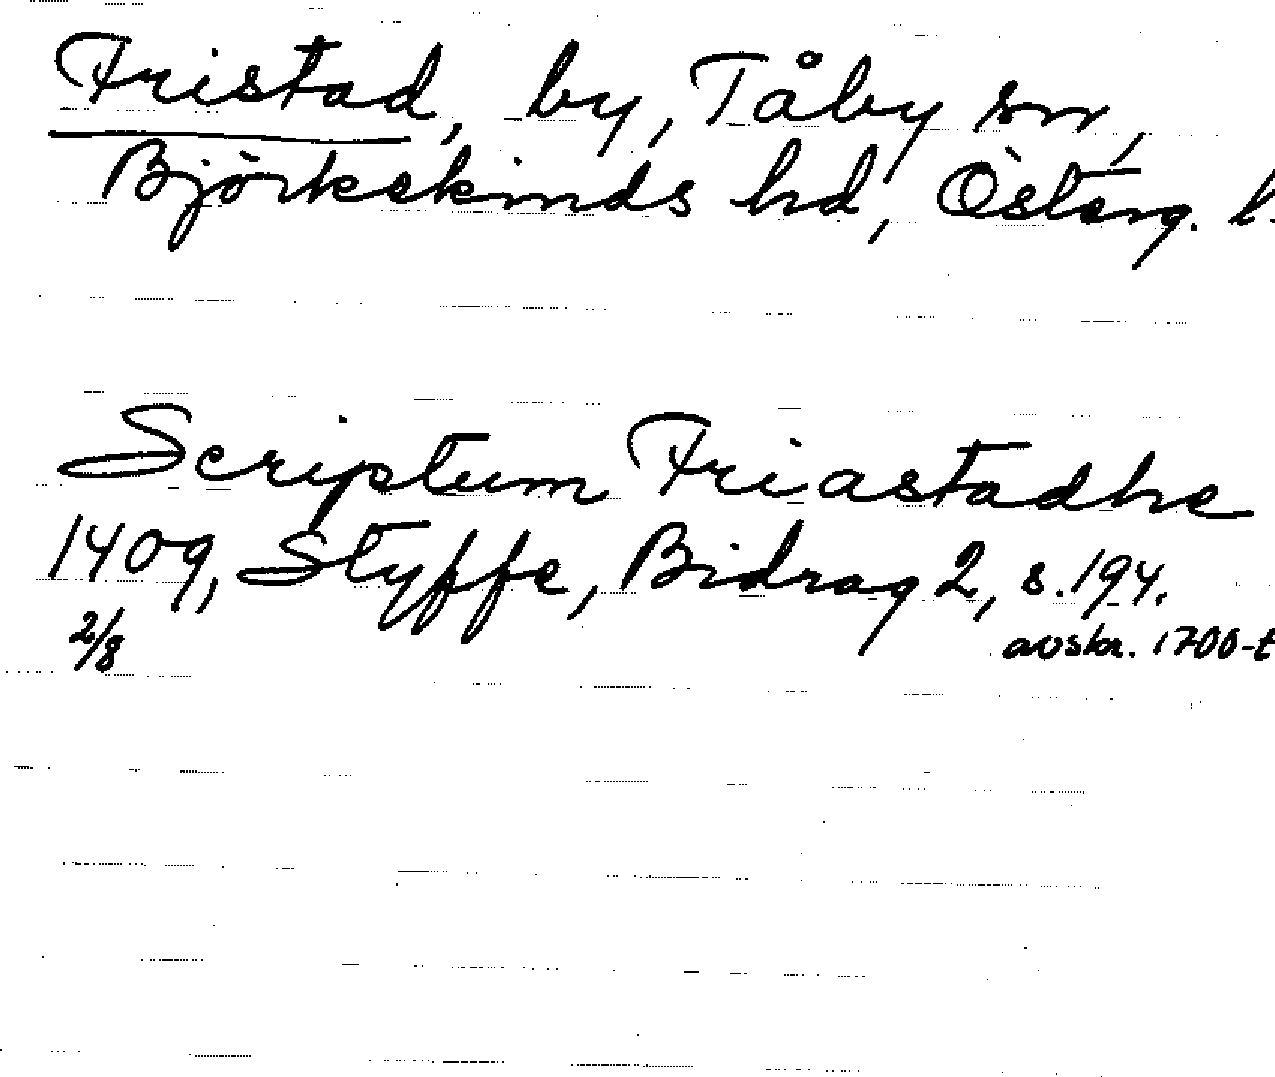 Fristad, by, Tåby sn,
Björkekinds hd, Österg. l.
Scriptum Friastadhe
1409, Styffe, Bidrag 2, s. 194.
2/8 avskr. 1700-t